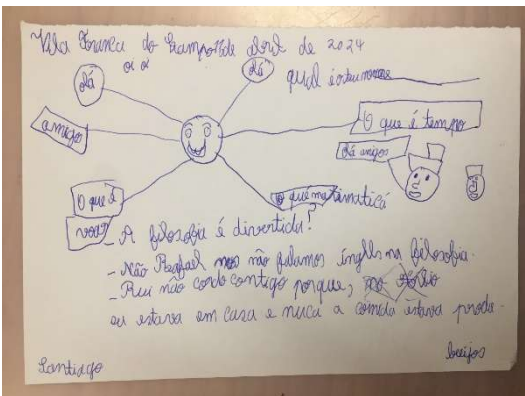 Vila Franca do Campo de abril de 2024
olá
olá
qual é o teu nome
amigos
O que é tempo
olá amigos
O que é voar
O que matematica?
- A filosofia é divertida!
- Não Rafael não falamos inglls na filosofia.
- Rui não cordo contigo porque,
eu estava em casa e nuca a comida estava prode-
Santiago
beijos